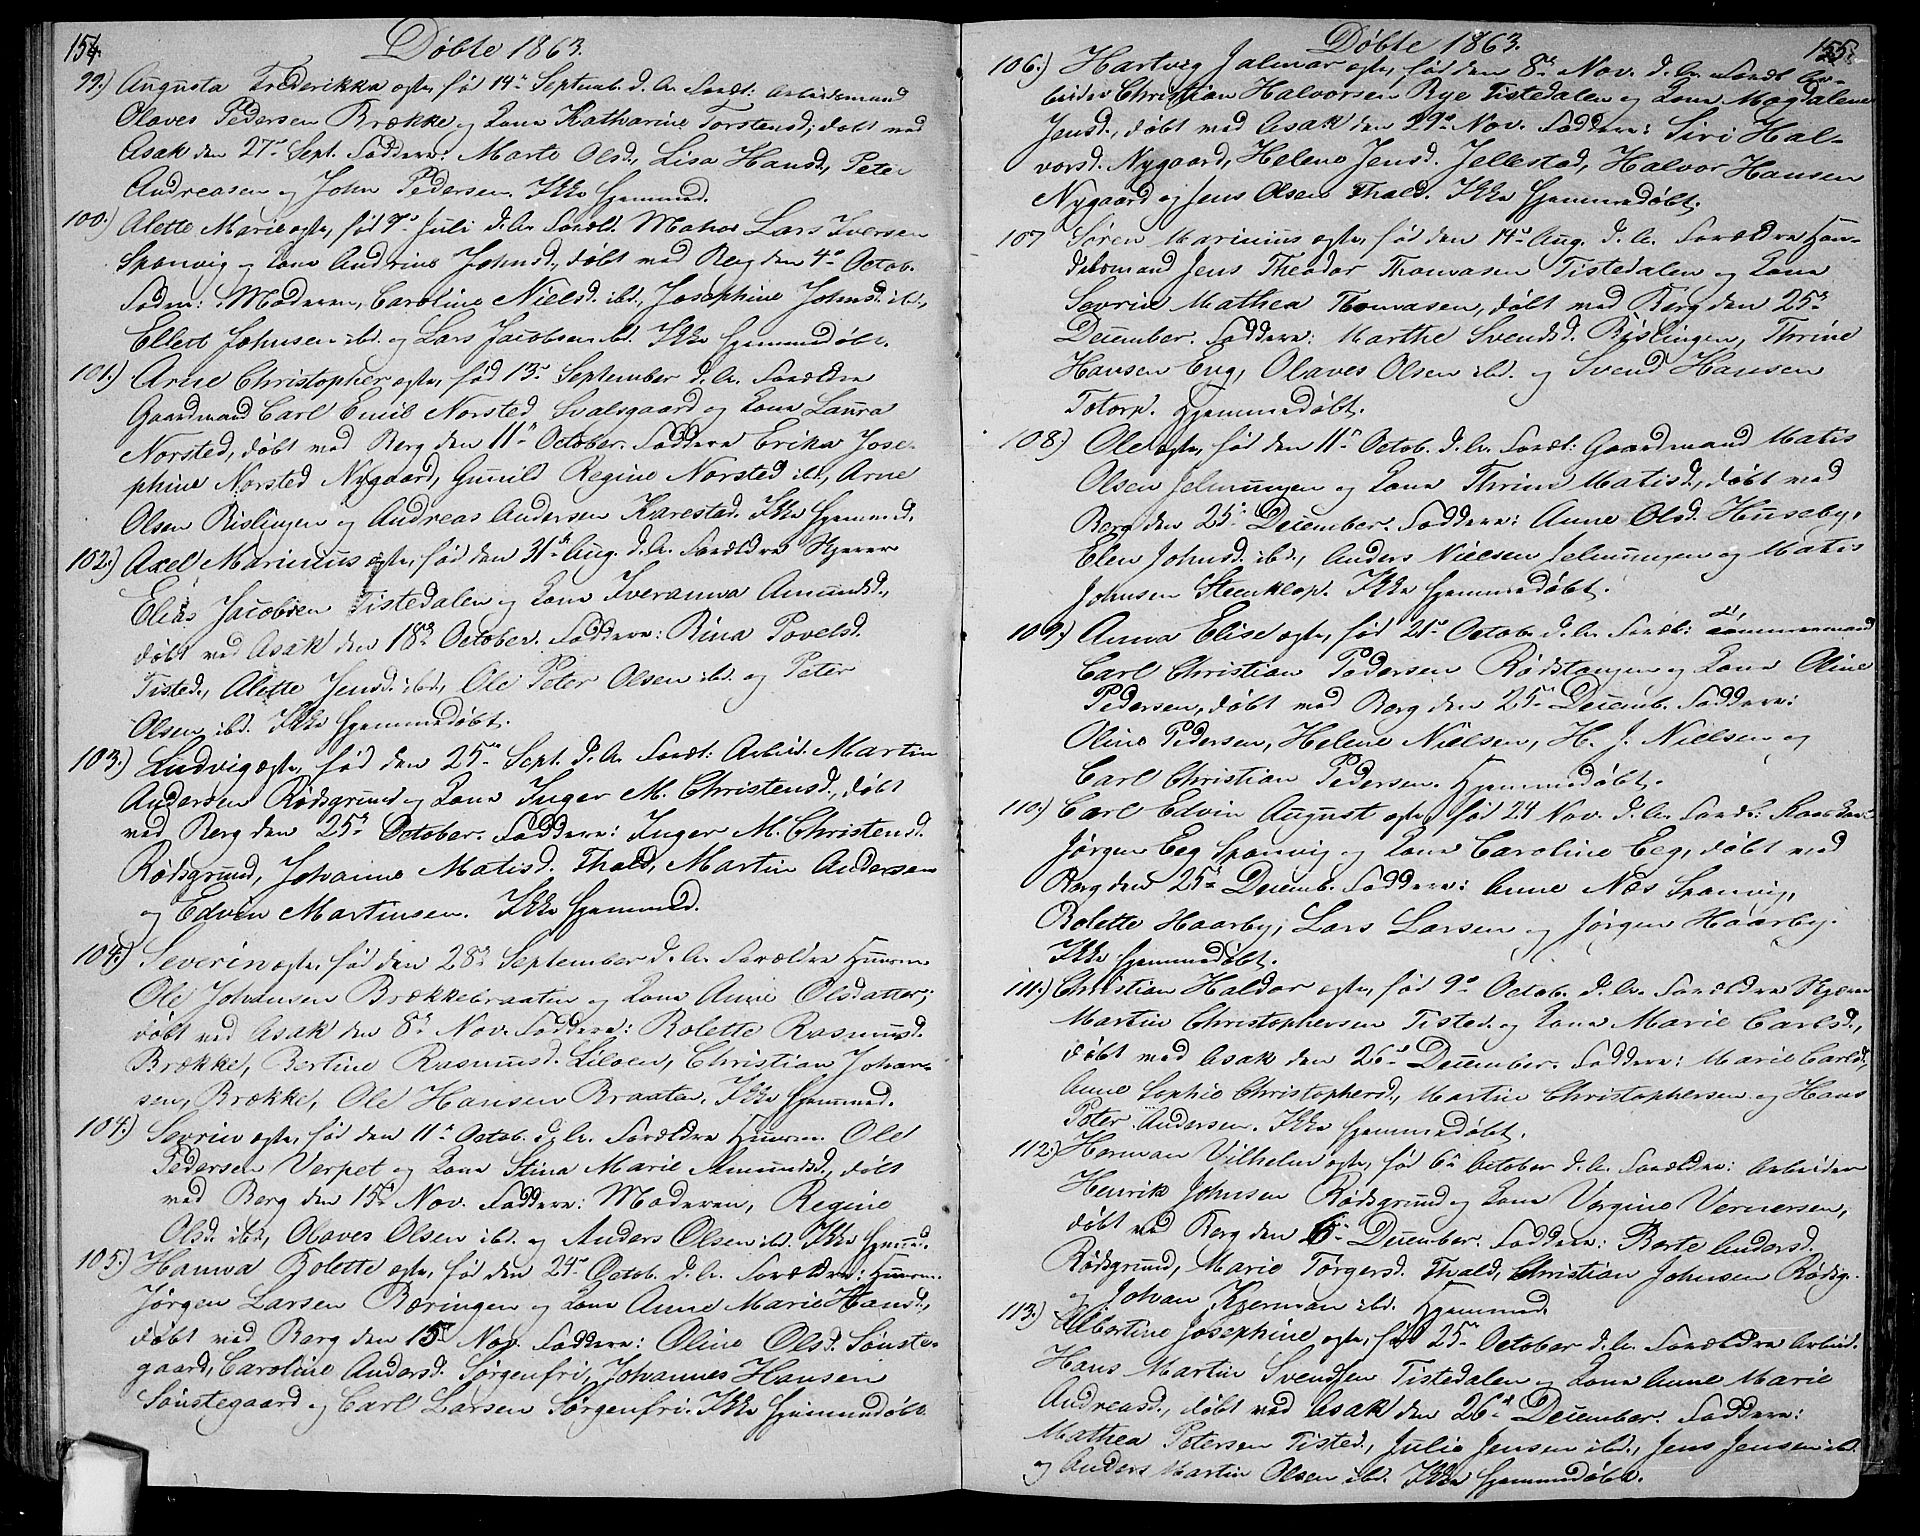 154.
Døbte 1863.
99.) Augusta Frederikka ægte, fød 14de Septemb. d. A. Foræl: Arbeidsmand
Olaves Pedersen Brække og Kone Katharine Torstensd., døbt ved
Asak den 27de Sept. Faddere: Marte Olsd., Lisa Hansd., Peter
Andreasen og John Pedersen. Ikke hjemmed.
100.) Alette Marie ægte, fød 9de Juli d. A. Foræld. Lars Iversen
Sponvig og Kone Andrine Johnsd., døbt ved Berg den 4de Octob.
Fadere: Moderen, Caroline Nielsd. ibd., Josephine Johnsd. ibd.,
Ellert Johnsen ibd. og Lars Jacobsen ibd. Ikke hjemmedøbt.
101.) Arne Christopher ægte, fød 13de September d. A. Forældre
Gaardmand Carl Emil Norsted Svalsgaard og Kone Laura
Norsted, døbt ved Berg den 11te October. Faddere Erika Jose-
phine Norsted Nygaard, Gunild Regine Norsted ibd., Arne
Olsen Rislingen og Andreas Andersen Karestad. Ikke hjemmed.
102.) Axel Marinius ægte, fød den 31te Aug. d. A. Forældre
Elias Jacobsen Tistedalen og Kone Iveranna Amundsd.,
døbt ved Asak den 18de October. Faddere: Rina Povelsd.
Tisted., Alette Jensd. ibd., Ole Peter Olsen ibd. og Peter
Olsen ibd. Ikke hjemmedøbt.
103.) Ludvig ægte, fød den 25de Sept. d. A. Foræl: Arbeid. Martin
Andersen Rødsgrund og Kone Inger M. Christensd., døbt
ved Berg den 25de October. Faddere: Inger M. Christensd.
Rødsgrund, Johanne Matisd. Thald, Martin Andersen
og Edvin Martinsen. Ikke hjemmed.
104.) Severin ægte, fød den 28de September d. A. Forældre Huusm.
Ole Johansen Brækkebraaten og Kone Anne Olsdatter;
døbt ved Asak den 8de Nov. Faddere: Bolette Rasmusd.
Brække, Bertine Rasmusd. Liloen, Christian Johan-
sen, Brække, Ole Hansen Braaten. Ikke hjemmed.
104.) Sevrin ægte, fød den 11te Octob. d. A. Forældre Huusm. Ole
Pedersen Verpet og Kone Stina Marie Amundsd., døbt
ved Berg den 15de Nov. Faddere: Moderen, Regine
Olsd. ibd., Olaves Olsen ibd. og Anders Olsen ibd. Ikke hjemmed.
105.) Hanna Bolette ægte, fød den 24de Octob. d. A. Forældre: Huusm.
Jørgen Larsen Bæringen og Kone Anne Marie Hansd.,
døbt ved Berg den 15de Nov. Faddere: Oline Olsd. Sønste-
gaard, Caroline Andersd. Sørgenfri, Johannes Hansen
Sønstegaard og Carl Larsen Sørgenfri. Ikke hjemmedøbt.
155.
Døbte 1863.
106.) Hartvig Jalmar ægte, fød den 8de Nov. d. A. Foræl: Ar-
beider Christian Halvorsen Rye Tistedalen og Kone Magdalene
Jensd., døbt ved Asak den 29de Nov. Faddere: Siri Hal-
vorsd. Nygaard, Helene Jensd. Jellestad, Halvor Hansen
Nygaard og Jens Olsen Thald. Ikke hjemmedøbt.
107 Søren Marinius ægte, fød den 14de Aug. d. A. Forældre Han-
delsmand Jens Theodor Thomasen Tistedalen og Kone
Sevrine Mathea Thomasen, døbt ved Berg den 25de
December. Faddere: Marthe Svendsd. Rislingen, Thrine
Hansen Eng, Olaves Olsen ibd. og Svend Hansen
Totorp. Hjemmedøbt.
108.) Ole ægte, fød den 11te Octob. d. A. Foræl: Gaardmand Matis
Olsen Jelmungen og Kone Thrine Matisd., døbt ved
Berg den 25de December. Faddere: Anne Olsd. Huseby,
Elen Johnsd. ibd., Anders Nielsen Jelmungen og Matis
Johnsen Steenklop. Ikke hjemmedøbt.
109.) Anna Elise ægte, fød 21de Octob. d. A. Foræl: Tømmermand
Carl Christian Pedersen Rødstangen og Kone Oline
Pedersen, døbt ved Berg den 25de Decemb. Faddere:
Oline Pedersen, Helene Nielsen, H. J. Nielsen og
Carl Christian Pedersen. Hjemmedøbt.
110.) Carl Edvin August ægte, fød 24 Nov. d. A. Foræl:
Jørgen Eeg Sponvig og Kone Caroline Eeg, døbt ved
Berg den 25de Decemb. Faddere: Anne Næs Sponvig,
Bolette Haarby, Lars Larsen og Jørgen Haarby.
Ikke hjemmedøbt.
111.) Christian Haldor ægte, fød 9de Octob. d. A. Forældre
Martin Christophersen Tisted. og Kone Marie Carlsd.,
døbt ved Asak den 26de December. Faddere: Marie Carlsd.,
Anne Sophie Christophersd., Martin Christophersen og Hans
Peter Andersen. Ikke hjemmedøbt.
112.) Herman Vilhelm ægte, fød 6te October d. A. Forældre: Arbeider
Henrik Johnsen Rødsgrund og Kone Vergine Vernersen,
døbt ved Berg den 6te December. Faddere: Berte Andersd.
Rødsgrund, Marie Torgersd. Thald, Christian Johnsen Rødsg.
og Johan Kjerman ibd. Hjemmed.
113.) Albertine Josephine ægte, fød 25de October d. A. Forældre Arbeid.
Hans Martin Svendsen Tistedalen og Kone Anne Marie
Andreasd., døbt ved Asak den 26de December. Faddere:
Mathea Petersen Tisted., Julie Jensen ibd., Jens Jensen ibd.
og Anders Martin Olsen ibd. Ikke hjemmedøbt.